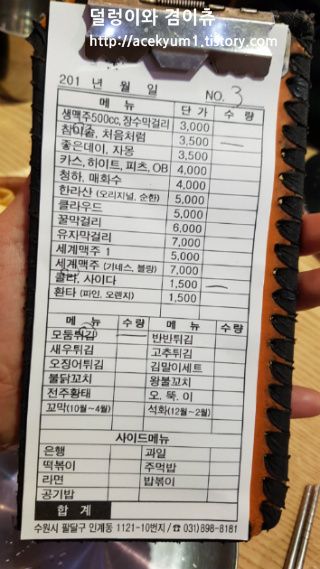 덜렁이와 겸이츄
http://acekyum1.tistory.com
201 년 월 일 NO. 3
메 뉴 단 가 수 량
생맥주500cc, 장수막걸리 3,000
참이슬, 처음처럼 3,500
좋은데이, 자몽 3,500
카스, 하이트, 피츠, OB 4,000
청하, 매화수 4,000
한라산 (오리지널, 순한) 5,000
클라우드 5,000
꿀막걸리 6,000
유자막걸리 7,000
세계맥주 1 5,000
세계맥주 (기네스, 블랑) 7,000
콜라, 사이다 1,500
환타 (파인, 오렌지) 1,500
메 뉴 수 량 메 뉴 수 량
모둠튀김 반반튀김
새우튀김 고추튀김
오징어튀김 김말이세트
불닭꼬치 왕불꼬치
전주황태 오. 뚝. 이
꼬막(10월~4월) 석화(12월~2월)
사이드메뉴
은행 과일
떡볶이 주먹밥
라면 밥볶이
공기밥
합 계
수원시 팔달구 인계동 1121-10번지 / ☎ 031) 898-8181